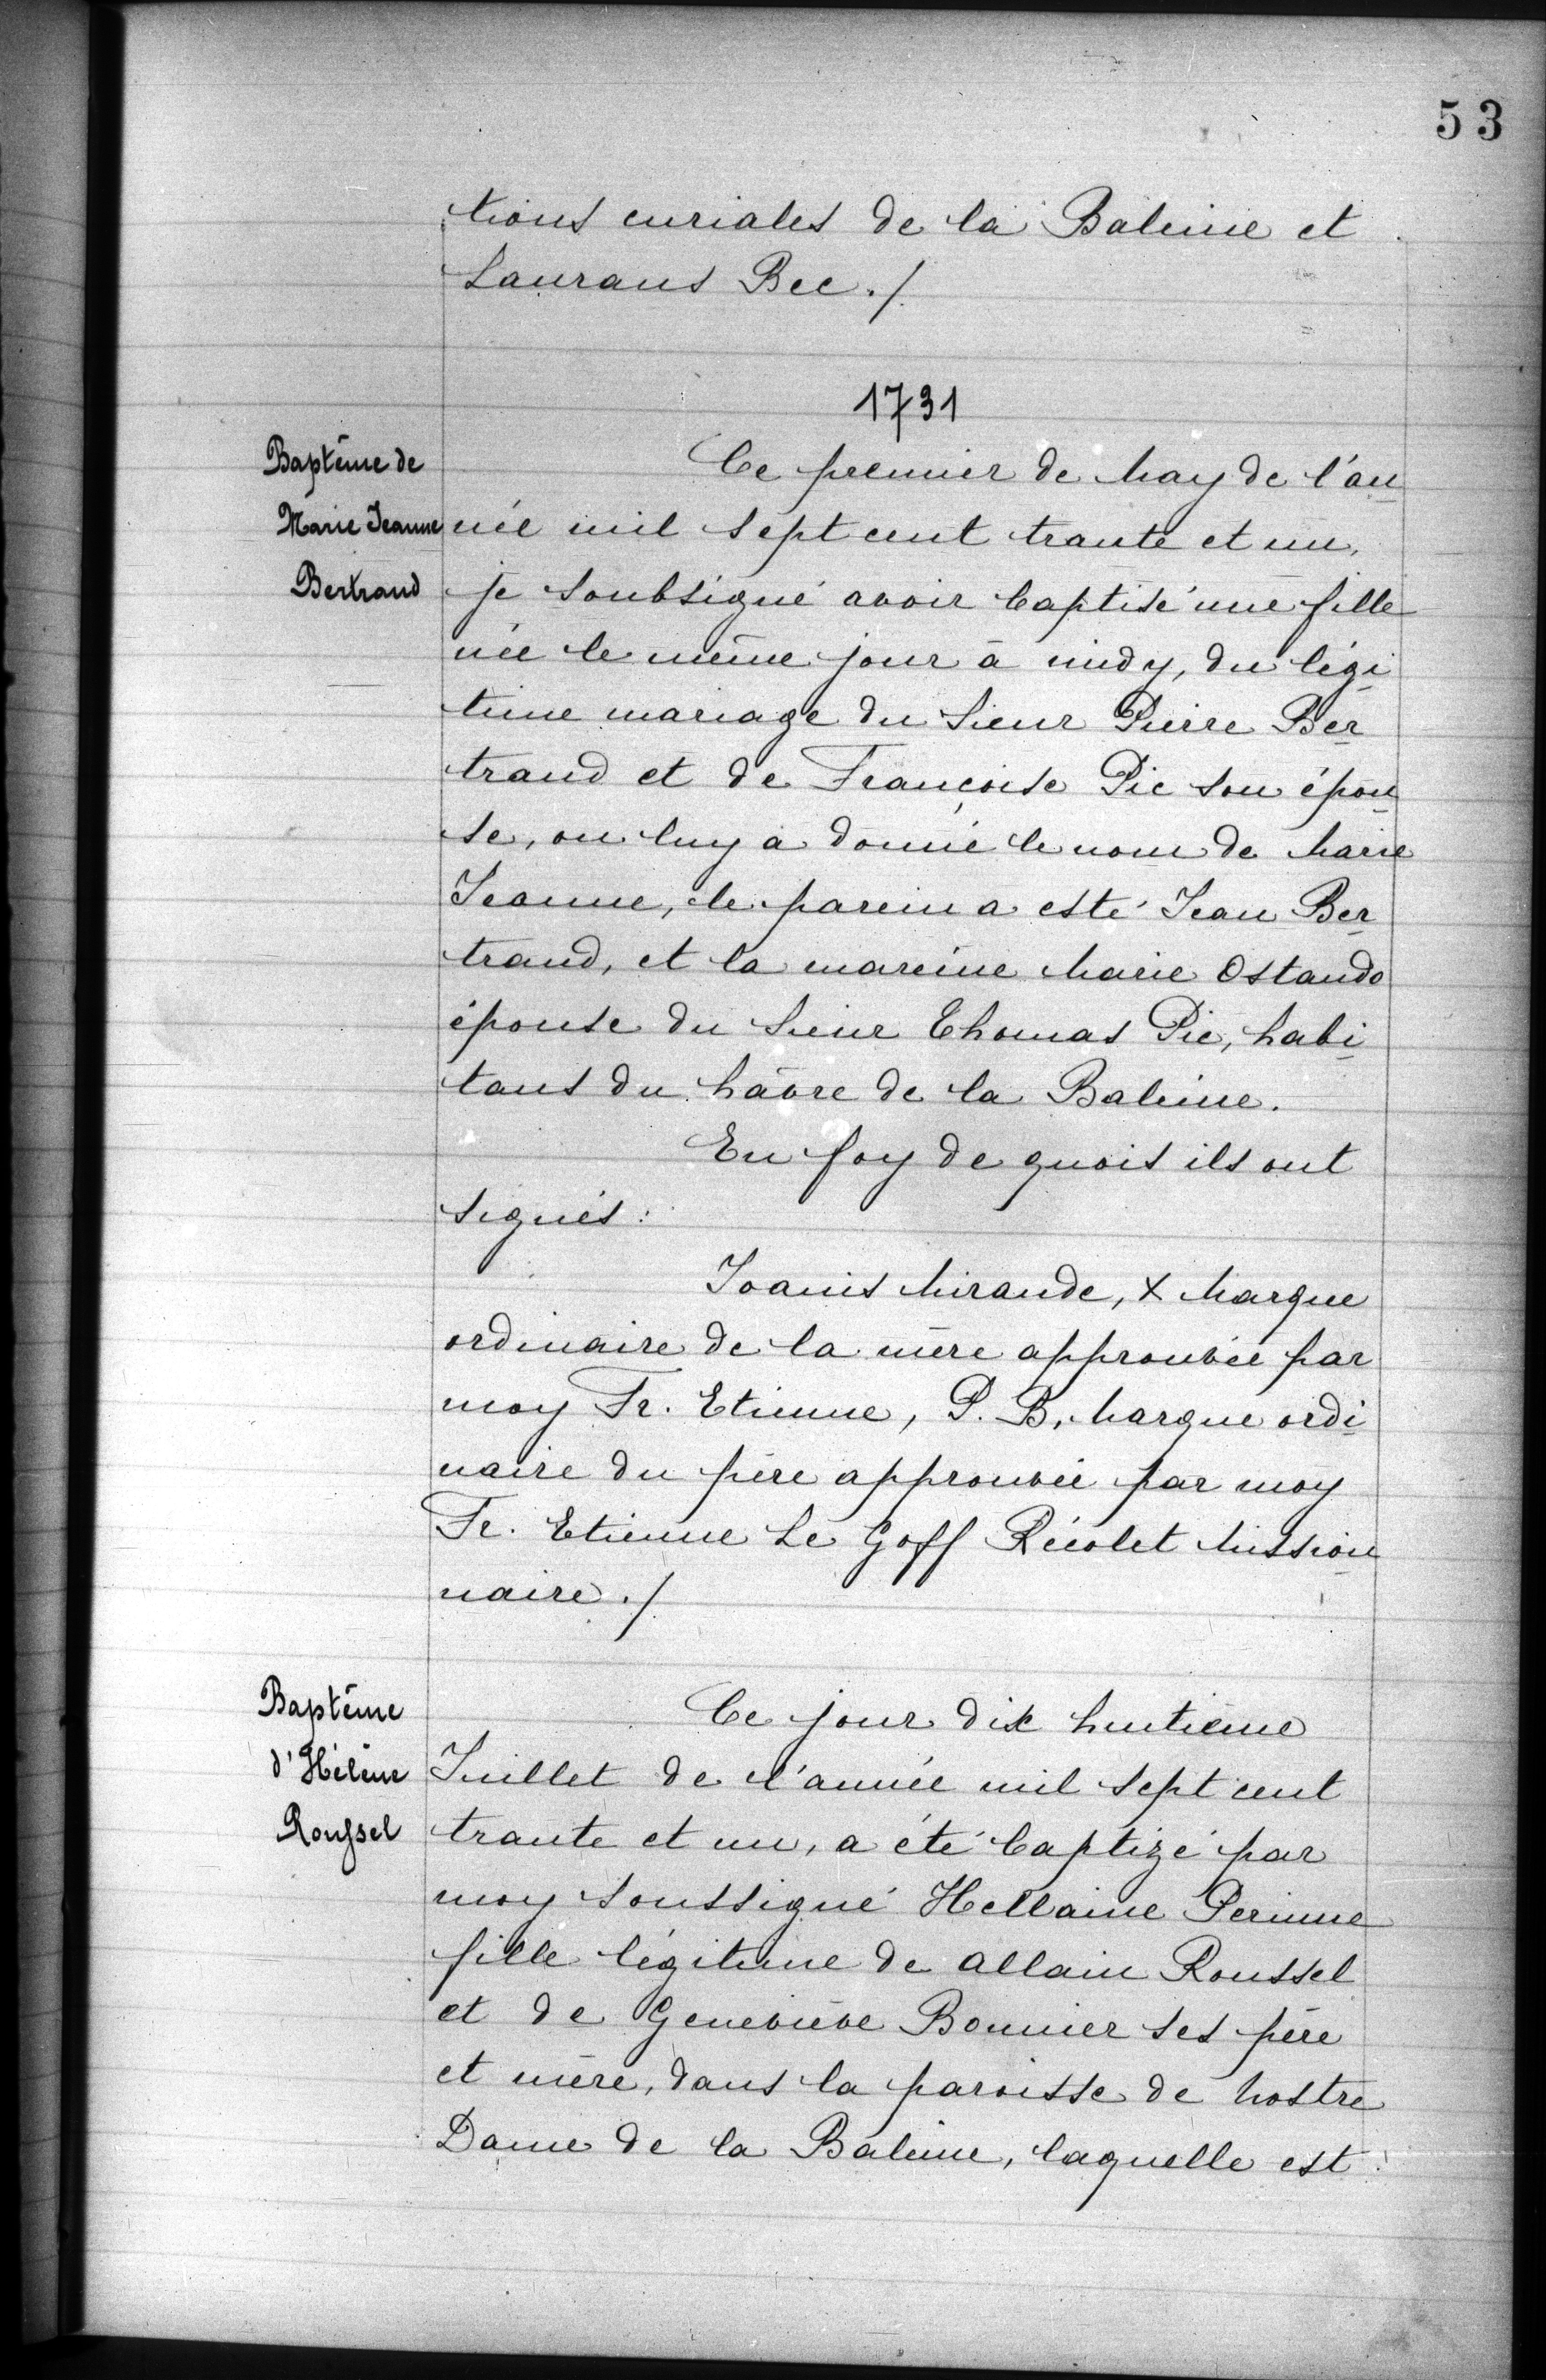 53
tions curiales de la Baleine et
Laurans Bec./
1731
Baptême de
Marie Jeanne
Bertrand
Ce premier de May de l'an
née mil sept cent trante et un,
je soubsigné avoir baptisé une fille
née le même jour à midy, du légi
time mariage du Sieur Pierre Ber
trand et de Françoise Pic son épou
se, on luy a donné le nom de Marie
Jeanne, le parein a esté Jean Ber
trand, et la mareine Marie Ostando
épouse du Sieur Thomas Pic, habi
tans du hâvre de la Baleine.
En foy de quois ils ont
signés:
Joanis Mirande, X Marque
ordinaire de la mère approuvée par
moy Fr. Etienne, P. B, Marque ordi
naire du père approuvée par moy
Fr. Etienne Le Goff Récolet Mission
naire./
Baptême
d'Hélène
Roussel
Ce jour dix huitième
Juillet de l'année mil sept cent
trante et un, a été baptizé par
moy soussigné Hellaine Perinne
fille légitime de Allain Roussel
et de Geneviève Bonnier ses père
et mère, dans la paroisse de Nostre
Dame de la Baleine, laquelle est